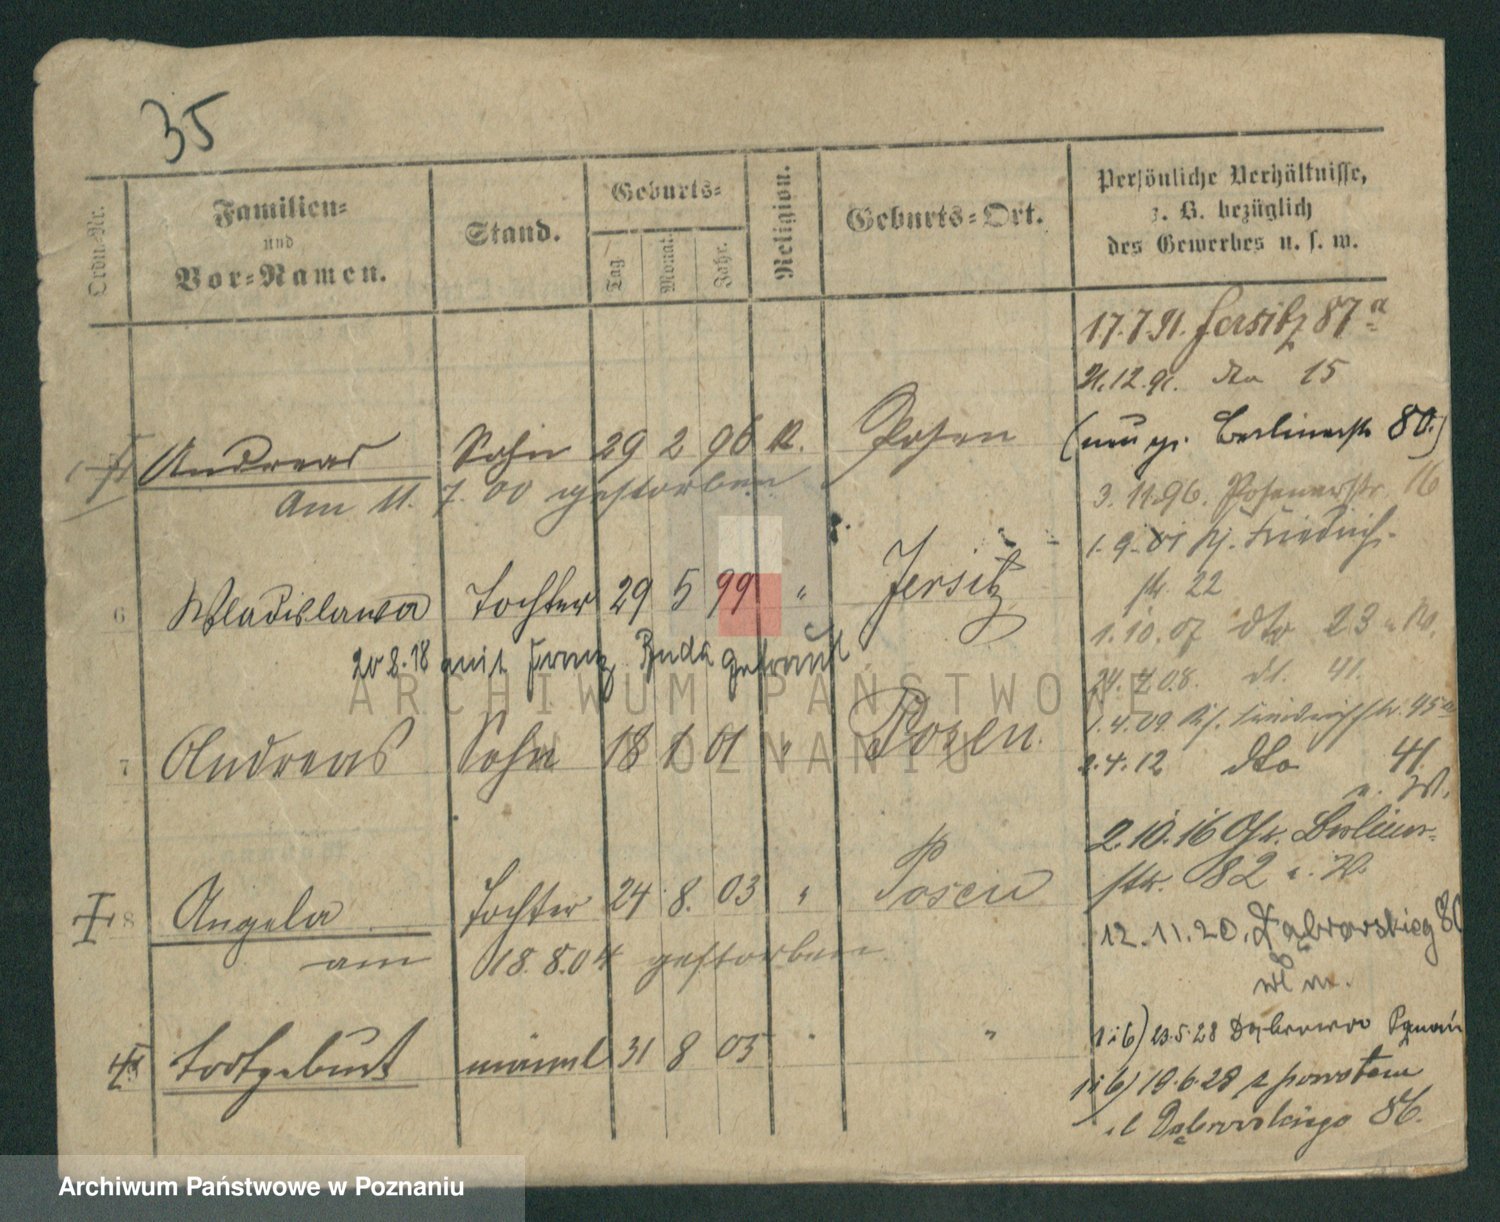 35
Ordn.-Nr. Familien- und Vor-Namen. Stand. Geburts- Tag Monat Jahr. Religion. Geburts-Ort. Persönliche Verhältnisse, z. B. bezüglich des Gewerbes u. s. w.
17.7.91. Jersitz 87a
21.12.91. dto 15
Andreas Sohn 29 2 96 K. Posen
Berlinerstr 80.)
Am 11. 7. 00 gestorben
3.11.96. Posenerstr 16
1.9.01 Friedrich-
str. 22
6 Wladislawa Tochter 29 5 99 " Jersitz
1.10.07 dto 23
20 8.18 mit Franz Buda getraut
24.7.08. dt. 41.
1.4.09 Friedrichstr. 45a
7 Andreas Sohn 18 1 01 " Posen.
2.4.12 dto 41.
2.10.16 Gr. Berliner-
str. 82
8 Angela Tochter 24 8. 03 " Posen
12.11.20. Dąbrowskieg 86
am 18.8.04 gestorben
m.
Todtgeburt männl 31 8 05 " "
1 i 6) 23.5.28 Dąbrowo Poznań
1 i 6) 19.6.28 z powrotem
ul Dąbrowskiego 86.
ARCHIWUM PAŃSTWOWE
W POZNANIU
Archiwum Państwowe w Poznaniu